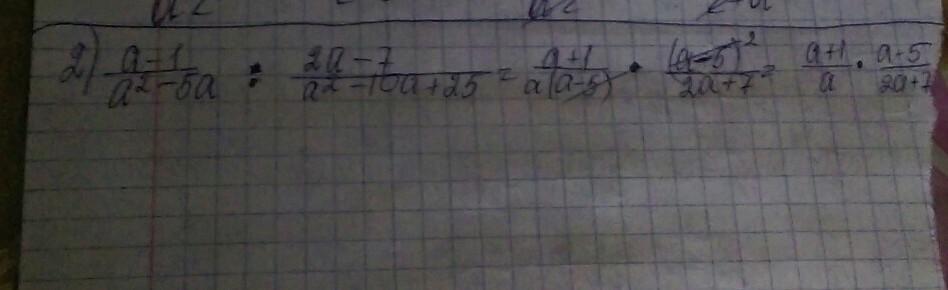 2) \frac{a-1}{a^2-5a} : \frac{2a-7}{a^2-10a+25} = \frac{a+1}{a(a-5)} \cdot \frac{(a-5)^2}{2a+7} = \frac{a+1}{a} \cdot \frac{a-5}{2a+7}